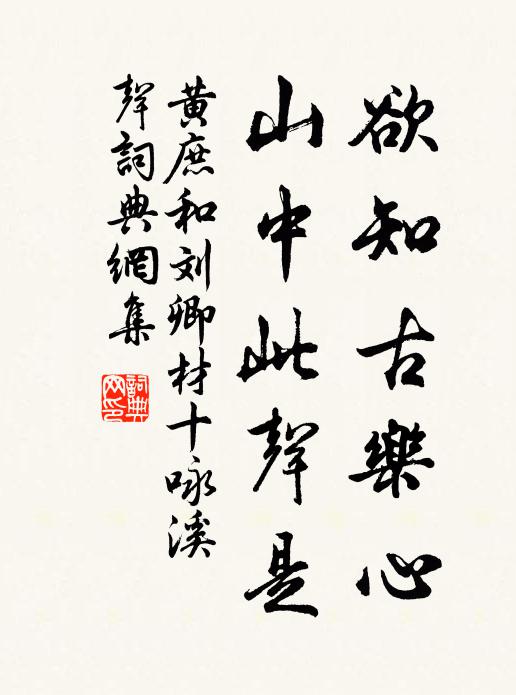 欲知古樂心
山中此聲是
黃庶和刘卿材十咏溪
聲詞典網集
詞典网印